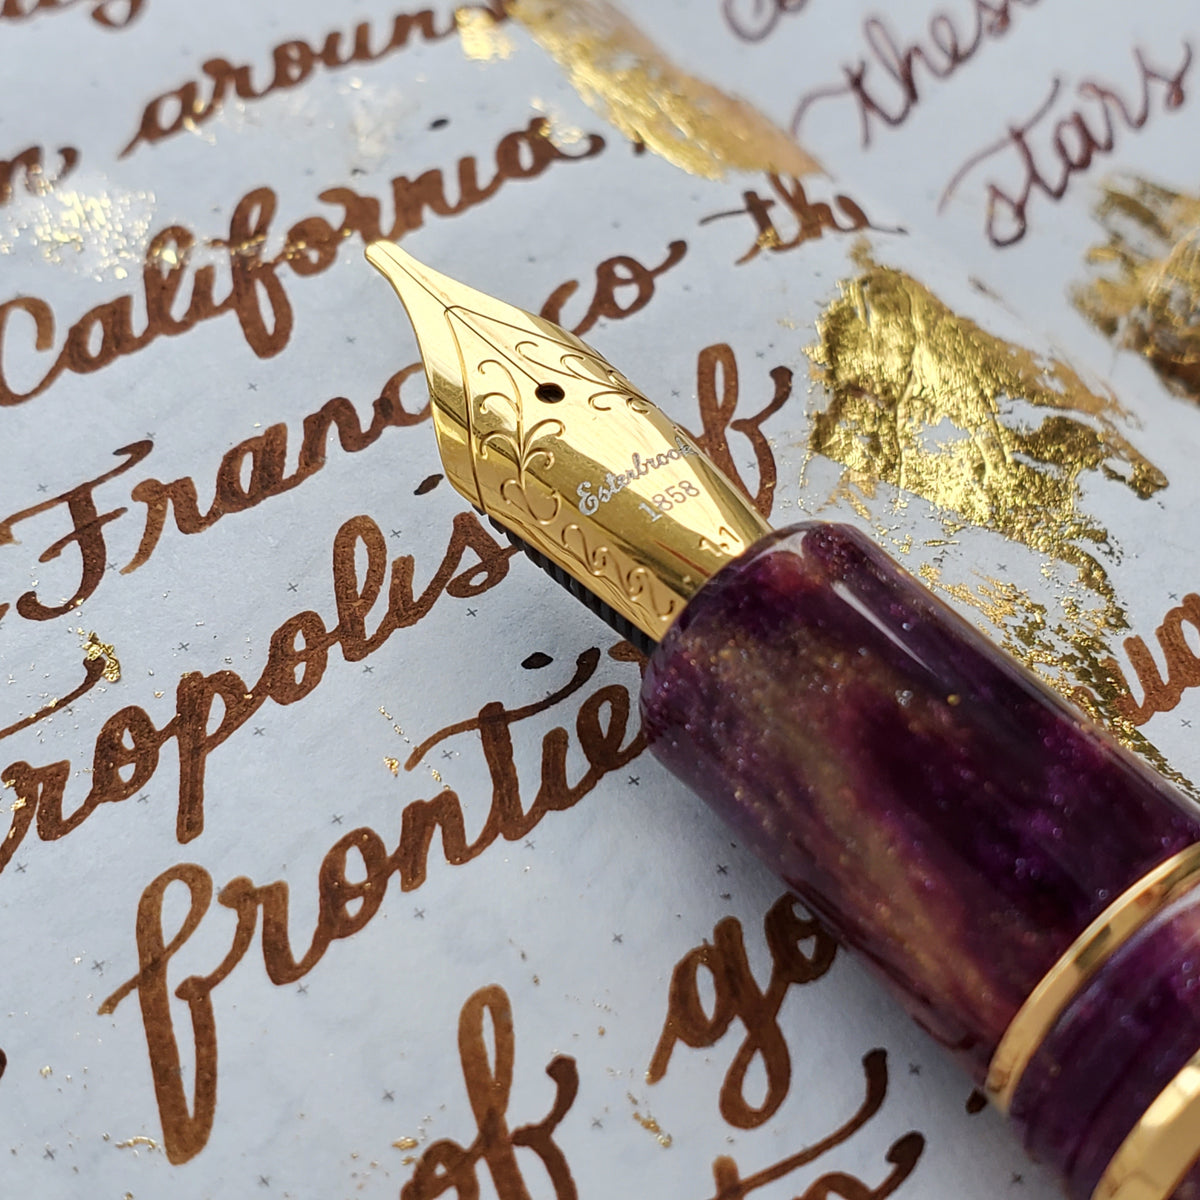 around
California
Francisco the
tropolis of
frontier
of go
these
stars
Esterbrook
1858
1.1